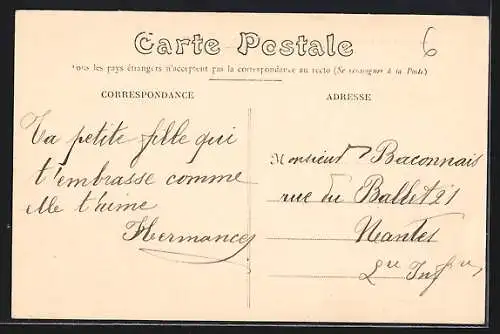 Carte Postale
6
Tous les pays étrangers n'acceptent pas la correspondance au recto (Se renseigner à la Poste)
CORRESPONDANCE
ADRESSE
Ta petite fille qui
t'embrasse comme
elle t'aime
Hermance
Monsieur Baconnais
rue du Ballet 21
Nantes
Lre Infre